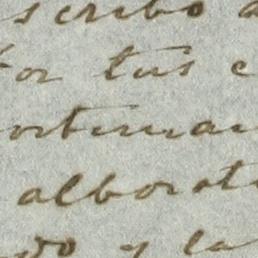 scribo a
for tus c
ortunan
alborot
do y la